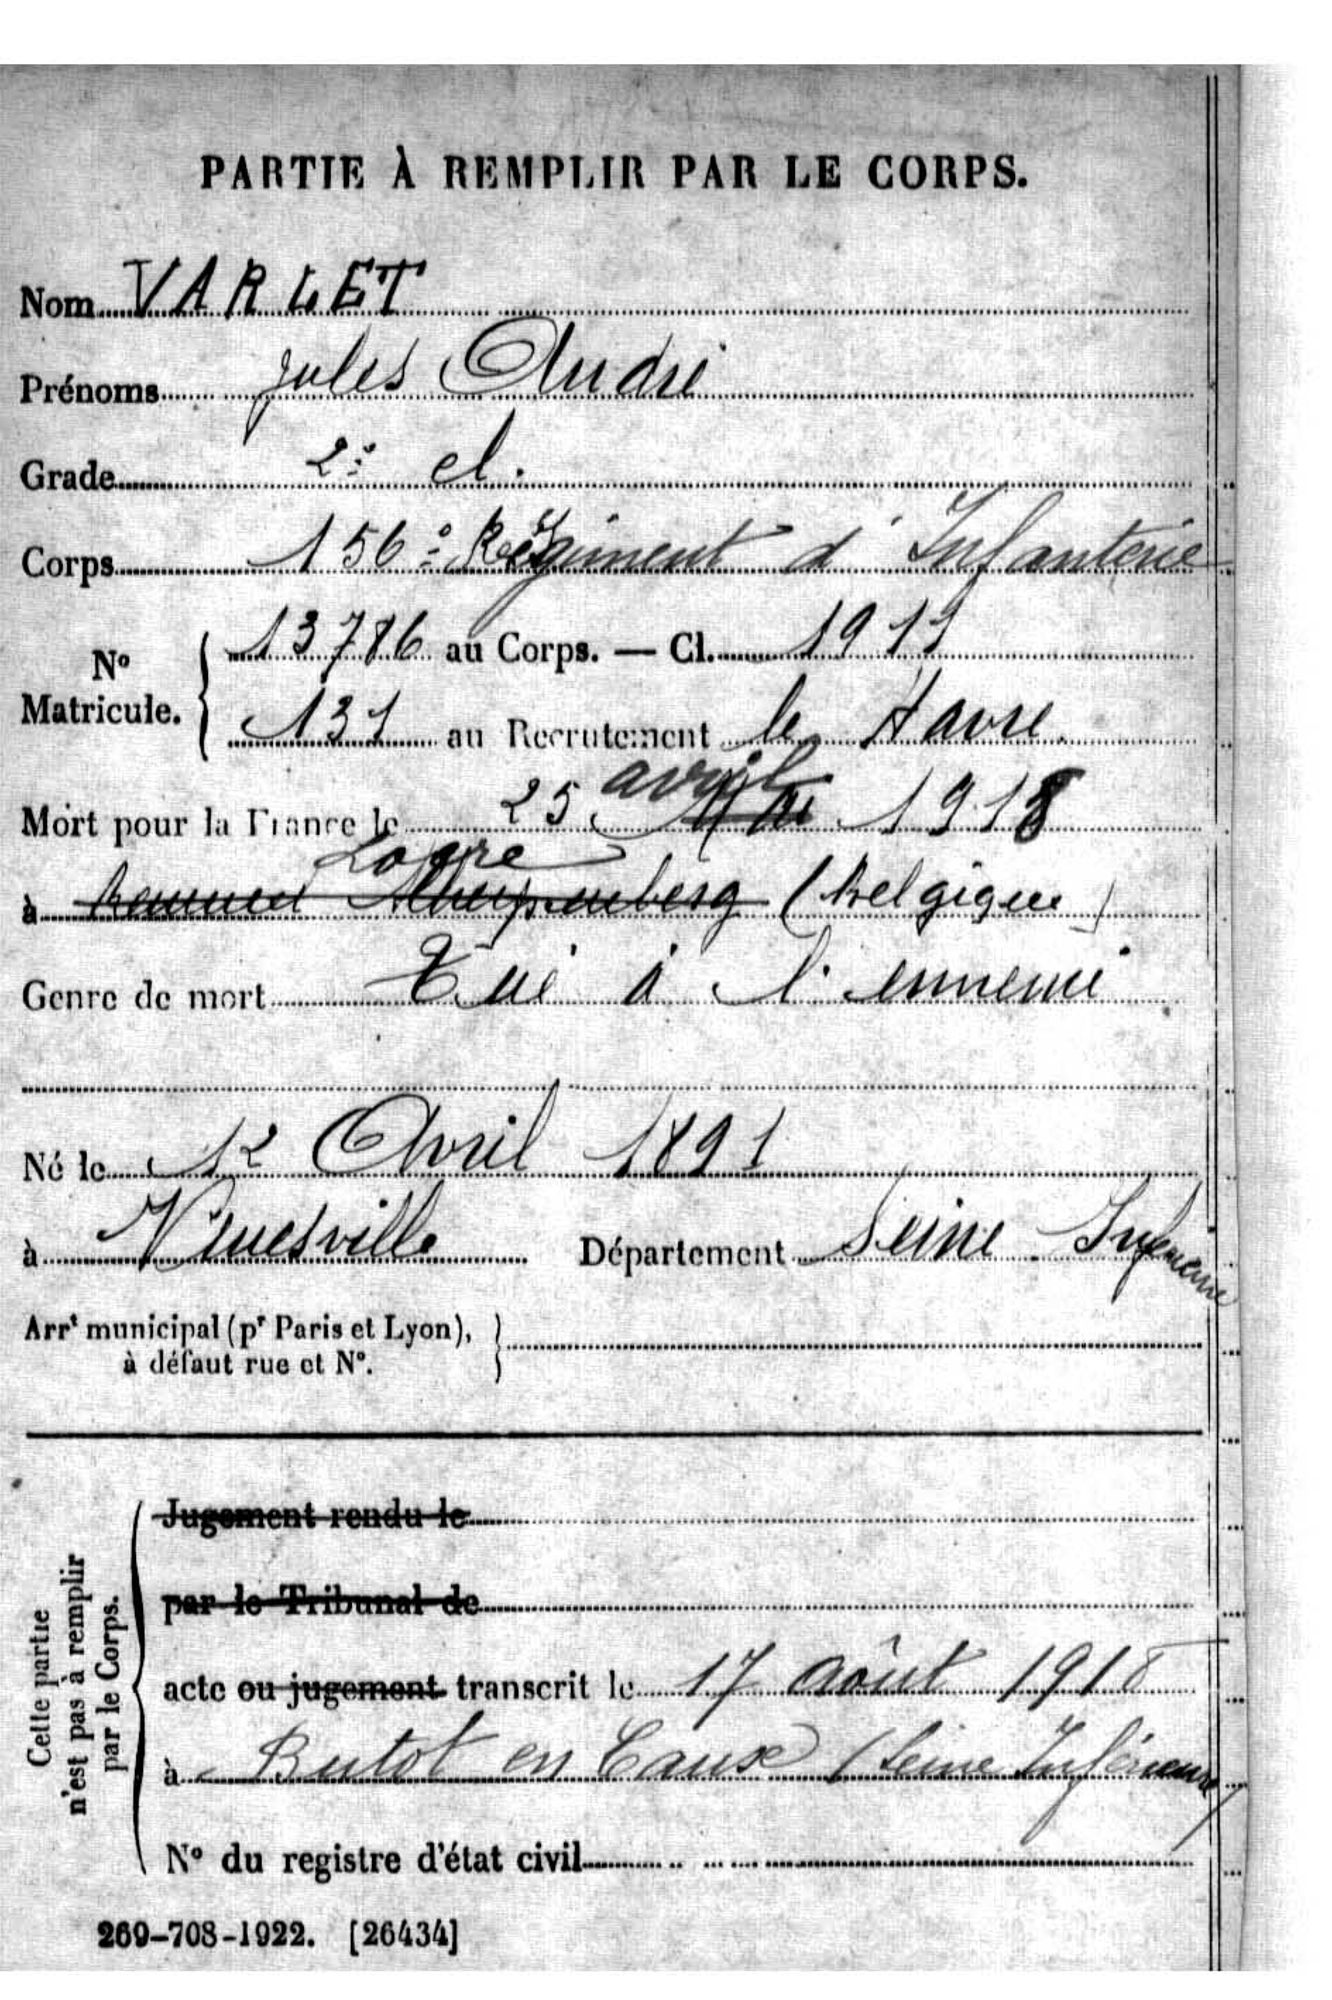 PARTIE À REMPLIR PAR LE CORPS.
Nom VARLET
Prénoms Jules André
Grade 2e cl.
Corps 156e Régiment d'Infanterie
No Matricule. 13786 au Corps. — Cl. 1911
131 au Recrutement le Havre
avril
Mort pour la France le 25 1918
Locre
à Kemmel Scherpenberg (Belgique)
Genre de mort Tué à l'ennemi
Né le 12 Avril 1891
à Vénesville Département Seine Inférieure
Arrt municipal (pr Paris et Lyon),
à défaut rue et No.
Cette partie
n'est pas à remplir
par le Corps.
Jugement rendu le
par le Tribunal de
acte ou jugement transcrit le 17 août 1918
à Butot en Caux (Seine Inférieure)
No du registre d'état civil
269-708-1922. [26434]